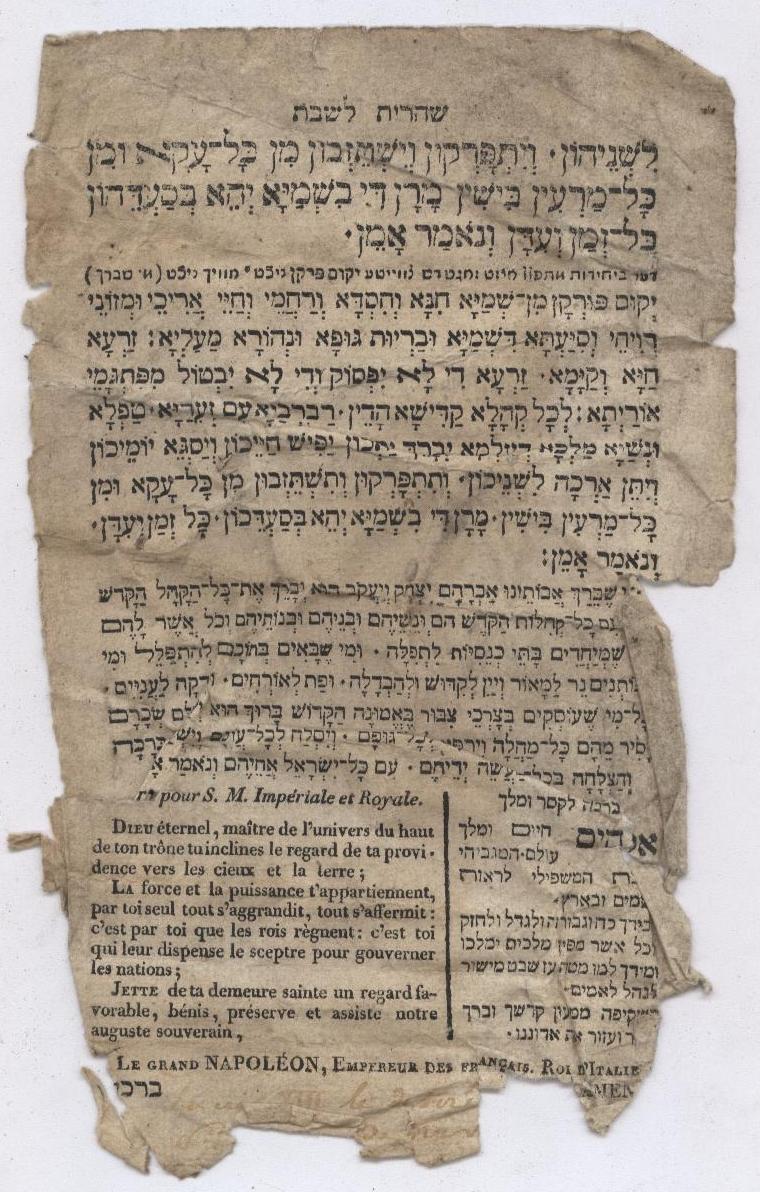 שחרית לשבת
לִשְׁנֵיהוֹן· וְיִתְפָּרְקוּן וְיִשְׁתֵּזְבוּן מִן כָּל־עָקָא וּמִן
כָּל־מַרְעִין בִּישִׁין מָרָן דִּי בִשְׁמַיָּא יְהֵא בְּסַעְדְּהוֹן
כָּל־זְמַן וְעִדָּן וְנֹאמַר אָמֵן·
ביחידות יקום פרקן ניכט
יְקוּם פּוּרְקָן מִן־שְׁמַיָּא חִנָּא וְחִסְדָּא וְרַחֲמֵי וְחַיֵּי אֲרִיכֵי וּמְזוֹנֵי
רְוִיחֵי וְסִיַּעְתָּא דִשְׁמַיָּא וּבַרְיוּת גּוּפָא וּנְהוֹרָא מַעַלְיָא: זַרְעָא
חַיָּא וְקַיָּמָא· זַרְעָא דִי לָא יִפְסוֹק וְדִי לָא יִבְטוֹל מִפִּתְגָּמֵי
אוֹרַיְתָא: לְכָל קְהָלָא קַדִּישָׁא הָדֵין· רַבְרְבַיָּא עִם זְעֵרַיָּא· טַפְלָא
וּנְשַׁיָּא מַלְכָּא דְעָלְמָא יְבָרֵךְ יַתְכוֹן יַפִּישׁ חַיֵּיכוֹן וְיַסְגֵּא יוֹמֵיכוֹן
וְיִתֵּן אַרְכָה לִשְׁנֵיכוֹן· וְתִתְפָּרְקוּן וְתִשְׁתֵּזְבוּן מִן כָּל־עָקָא וּמִן
כָּל־מַרְעִין בִּישִׁין· מָרָן דִּי בִשְׁמַיָּא יְהֵא בְּסַעְדְּכוֹן· כָּל זְמַן וְעִדָּן·
וְנֹאמַר אָמֵן:
שֶׁבֵּרַךְ אֲבוֹתֵינוּ אַבְרָהָם יִצְחָק וְיַעֲקֹב הוּא יְבָרֵךְ אֶת־כָּל־הַקָּהָל הַקָּדֹשׁ
עִם כָּל־קְהִלּוֹת הַקֹּדֶשׁ הֵם וּנְשֵׁיהֶם וּבְנֵיהֶם וּבְנוֹתֵיהֶם וְכֹל אֲשֶׁר לָהֶם
שֶׁמְּיַחֲדִים בָּתֵּי כְנֵסִיּוֹת לִתְפִלָּה· וּמִי שֶׁבָּאִים בְּתוֹכָם לְהִתְפַּלֵּל וּמִי
נוֹתְנִים נֵר לַמָּאוֹר וְיַיִן לְקִדּוּשׁ וּלְהַבְדָּלָה· וּפַת לְאוֹרְחִים· וּצְדָקָה לַעֲנִיִּים·
כָּל־מִי שֶׁעוֹסְקִים בְּצָרְכֵי צִבּוּר בֶּאֱמוּנָה הַקָּדוֹשׁ בָּרוּךְ הוּא שְׂכָרָם
יָסִיר מֵהֶם כָּל־מַחֲלָה וְיִרְפָּא לְכָל־גּוּפָם· וְיִסְלַח לְכָל־עֲוֹנָם בְּרָכָה
וְהַצְלָחָה בְּכָל־מַעֲשֵׂה יְדֵיהֶם· עִם כָּל־יִשְׂרָאֵל אֲחֵיהֶם וְנֹאמַר
pour S. M. Impériale et Royale.
DIEU éternel, maître de l'univers du haut
de ton trône tu inclines le regard de ta provi-
dence vers les cieux et la terre;
LA force et la puissance t'appartiennent,
par toi seul tout s'aggrandit, tout s'affermit:
c'est par toi que les rois règnent: c'est toi
qui leur dispense le sceptre pour gouverner
les nations;
JETTE de ta demeure sainte un regard fa-
vorable, bénis, préserve et assiste notre
auguste souverain,
ברכה לקסר ומלך
אלהים חיים ומלך
עולם·המגביהי
המשפילי לראות
בשמים ובארץ·
בידך כח וגבורה ולגדל ולחזק
וכל אשר מלכים ימלכו
ומידך למו מטה עז שבט מישור
לנהל לאמים·
השקיפה ממעון קדשך וברך
ועזור את אדוננו·
LE GRAND NAPOLÉON, EMPEREUR DES FRANÇAIS. ROI D'ITALIE
AMEN
ברכי